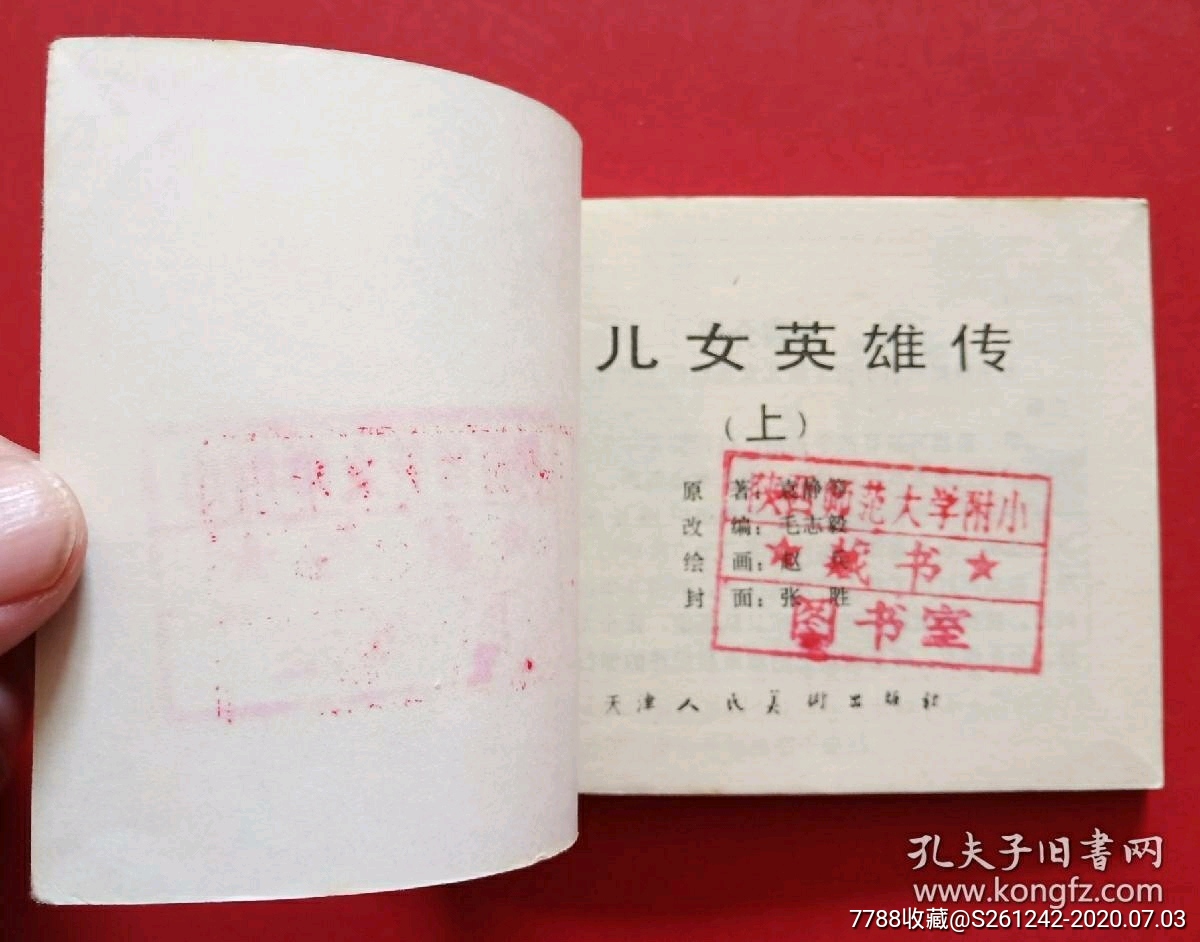 儿女英雄传
（上）
原 著：袁静等
改 编：毛志毅
绘 画：赵
封 面：张 胜
陕西师范大学附小
★ 藏书 ★
图书室
天津人民美術出版社
孔夫子旧書网
www.kongfz.com
7788收藏@S261242-2020.07.03